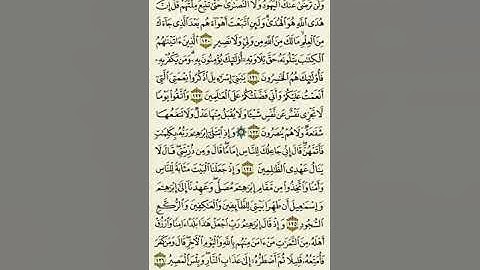 وَلَن تَرْضَىٰ عَنكَ ٱلْيَهُودُ وَلَا ٱلنَّصَٰرَىٰ حَتَّىٰ تَتَّبِعَ مِلَّتَهُمْ قُلْ إِنَّ
هُدَى ٱللَّهِ هُوَ ٱلْهُدَىٰ وَلَئِنِ ٱتَّبَعْتَ أَهْوَآءَهُم بَعْدَ ٱلَّذِى جَآءَكَ
مِنَ ٱلْعِلْمِ مَا لَكَ مِنَ ٱللَّهِ مِن وَلِىٍّ وَلَا نَصِيرٍ ١٢٠ ٱلَّذِينَ ءَاتَيْنَٰهُمُ
ٱلْكِتَٰبَ يَتْلُونَهُۥ حَقَّ تِلَاوَتِهِۦٓ أُو۟لَٰٓئِكَ يُؤْمِنُونَ بِهِۦ وَمَن يَكْفُرْ بِهِۦ
فَأُو۟لَٰٓئِكَ هُمُ ٱلْخَٰسِرُونَ ١٢١ يَٰبَنِىٓ إِسْرَٰٓءِيلَ ٱذْكُرُوا۟ نِعْمَتِىَ ٱلَّتِىٓ
أَنْعَمْتُ عَلَيْكُمْ وَأَنِّى فَضَّلْتُكُمْ عَلَى ٱلْعَٰلَمِينَ ١٢٢ وَٱتَّقُوا۟ يَوْمًا
لَّا تَجْزِى نَفْسٌ عَن نَّفْسٍ شَيْـًٔا وَلَا يُقْبَلُ مِنْهَا عَدْلٌ وَلَا تَنفَعُهَا
شَفَٰعَةٌ وَلَا هُمْ يُنصَرُونَ ١٢٣ ۞ وَإِذِ ٱبْتَلَىٰٓ إِبْرَٰهِـۧمَ رَبُّهُۥ بِكَلِمَٰتٍ
فَأَتَمَّهُنَّ قَالَ إِنِّى جَاعِلُكَ لِلنَّاسِ إِمَامًا قَالَ وَمِن ذُرِّيَّتِى قَالَ لَا
يَنَالُ عَهْدِى ٱلظَّٰلِمِينَ ١٢٤ وَإِذْ جَعَلْنَا ٱلْبَيْتَ مَثَابَةً لِّلنَّاسِ
وَأَمْنًا وَٱتَّخِذُوا۟ مِن مَّقَامِ إِبْرَٰهِـۧمَ مُصَلًّى وَعَهِدْنَآ إِلَىٰٓ إِبْرَٰهِـۧمَ
وَإِسْمَٰعِيلَ أَن طَهِّرَا بَيْتِىَ لِلطَّآئِفِينَ وَٱلْعَٰكِفِينَ وَٱلرُّكَّعِ
ٱلسُّجُودِ ١٢٥ وَإِذْ قَالَ إِبْرَٰهِـۧمُ رَبِّ ٱجْعَلْ هَٰذَا بَلَدًا ءَامِنًا وَٱرْزُقْ
أَهْلَهُۥ مِنَ ٱلثَّمَرَٰتِ مَنْ ءَامَنَ مِنْهُم بِٱللَّهِ وَٱلْيَوْمِ ٱلْءَاخِرِ قَالَ وَمَن كَفَرَ
فَأُمَتِّعُهُۥ قَلِيلًا ثُمَّ أَضْطَرُّهُۥٓ إِلَىٰ عَذَابِ ٱلنَّارِ وَبِئْسَ ٱلْمَصِيرُ ١٢٦